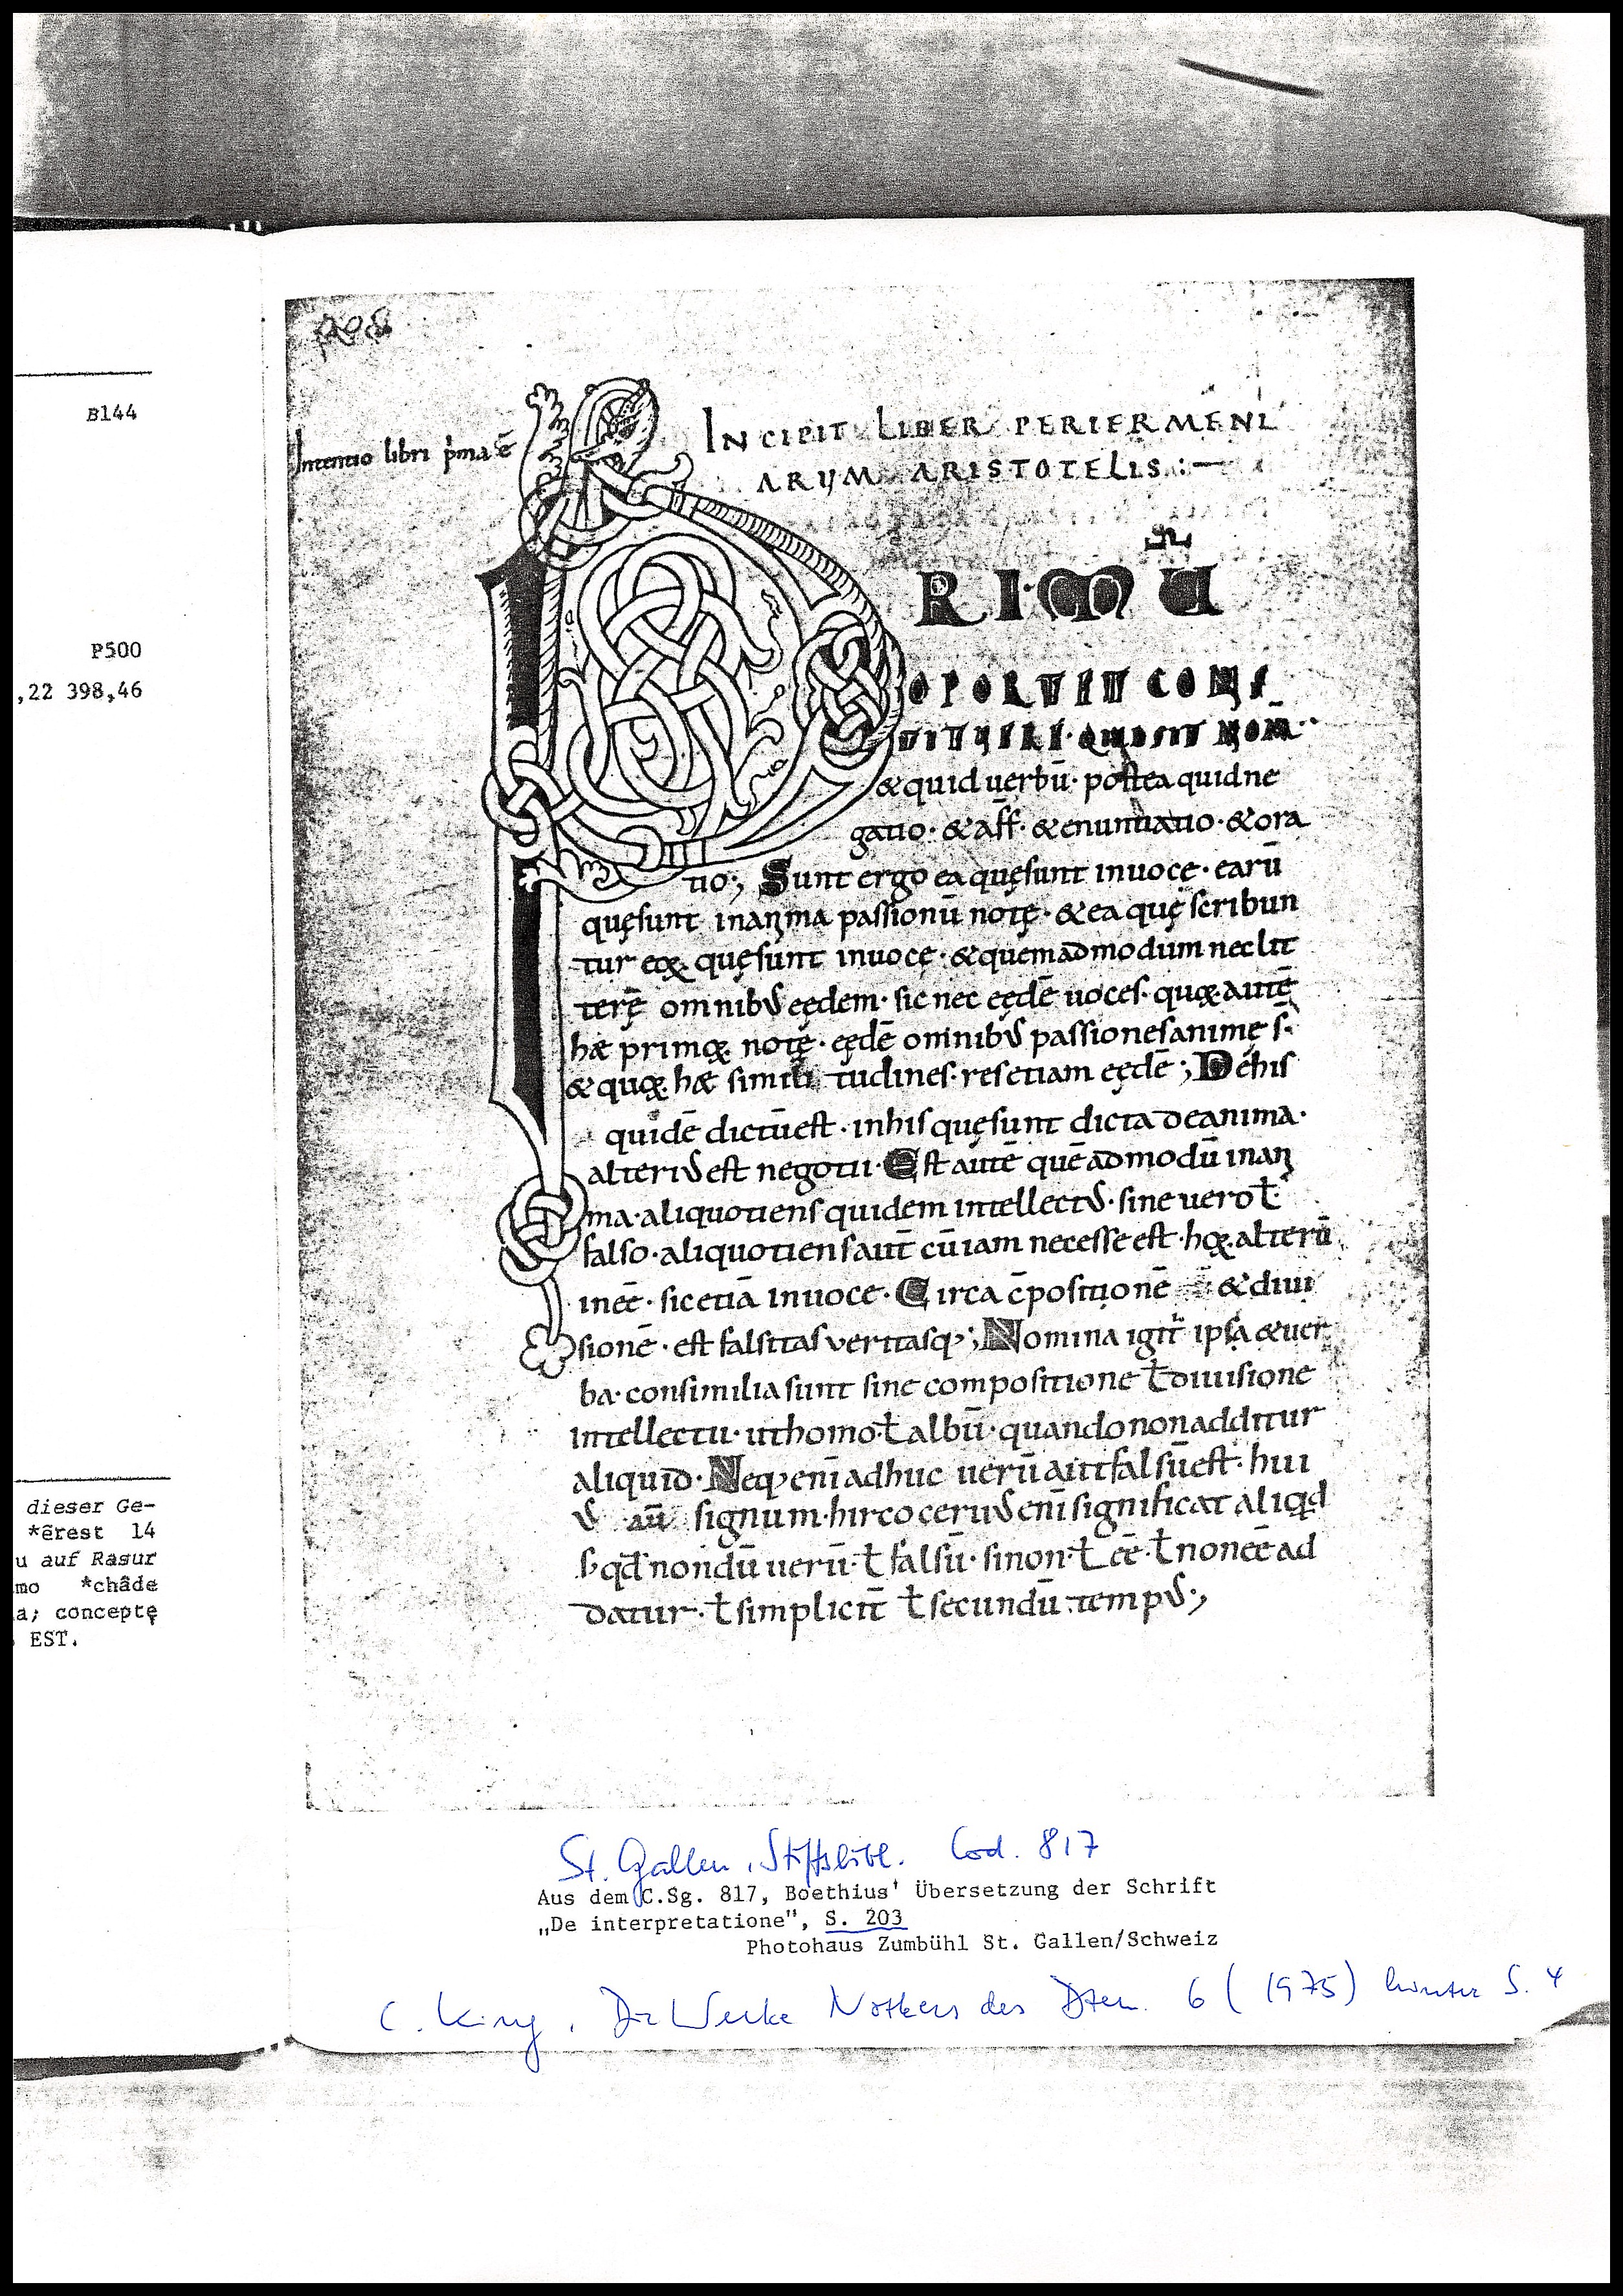 B144
P500
,22 398,46
dieser Ge-
*êrest 14
u auf Rasur
mo *châde
a; conceptę
EST.
Intentio libri p̍ma ē
INCIPIT LIBER PERIERMENI
ARUM ARISTOTELIS:—
PRIMŪ
OPORTET CONS
TITUERE· QUID SIT NOM̄·
& quid uerbū· postea quid ne
gatio· & aff̄· & enuntiatio· & ora
tio; Sunt ergo ea quę sunt in uoce· earū
quę sunt in anima passionū notę· & ea quę scribun
tur eoꝝ quę sunt in uoce· & quemadmodum nec lit
terę omnibus eędem· sic nec eędē uoces· quoꝝ autē
hæ primoꝝ notę· eędē omnibus passiones animę s·
& quoꝝ hæ similitudines· res etiam eędē; De his
quidē dictū est· in his quę sunt dicta de anima·
alterius est negotii· Est autē quēadmodū in ani
ma· aliquotiens quidem intellectus· sine uero ł·
falso· aliquotiens aut̄ cū iam necesse est· hoꝝ alterū
inēē· sic etiā in uoce· Circa c̄positionē & diui
sionē· est falsitas veritasq;; Nomina igit̄ ipsa & uer
ba· consimilia sunt sine compositione ł diuisione
intellectu· ut homo ł albū· quando non additur
aliquid· Neq; enī adhuc uerū aut falsū est· hui
us aū signum· hircoceruus enī significat aliqd
s; qd̄ nondū uerū· ł falsū· si non· ł ēē· ł non ēē ad
datur· ł simplicit̄ ł secundū tempus;
St. Gallen, Stiftsbibl. Cod. 817
Aus dem C.Sg. 817, Boethius' Übersetzung der Schrift
„De interpretatione", S. 203
Photohaus Zumbühl St. Gallen/Schweiz
C. King, Die Werke Notkers des Dten. 6 (1975) hinter S. 4